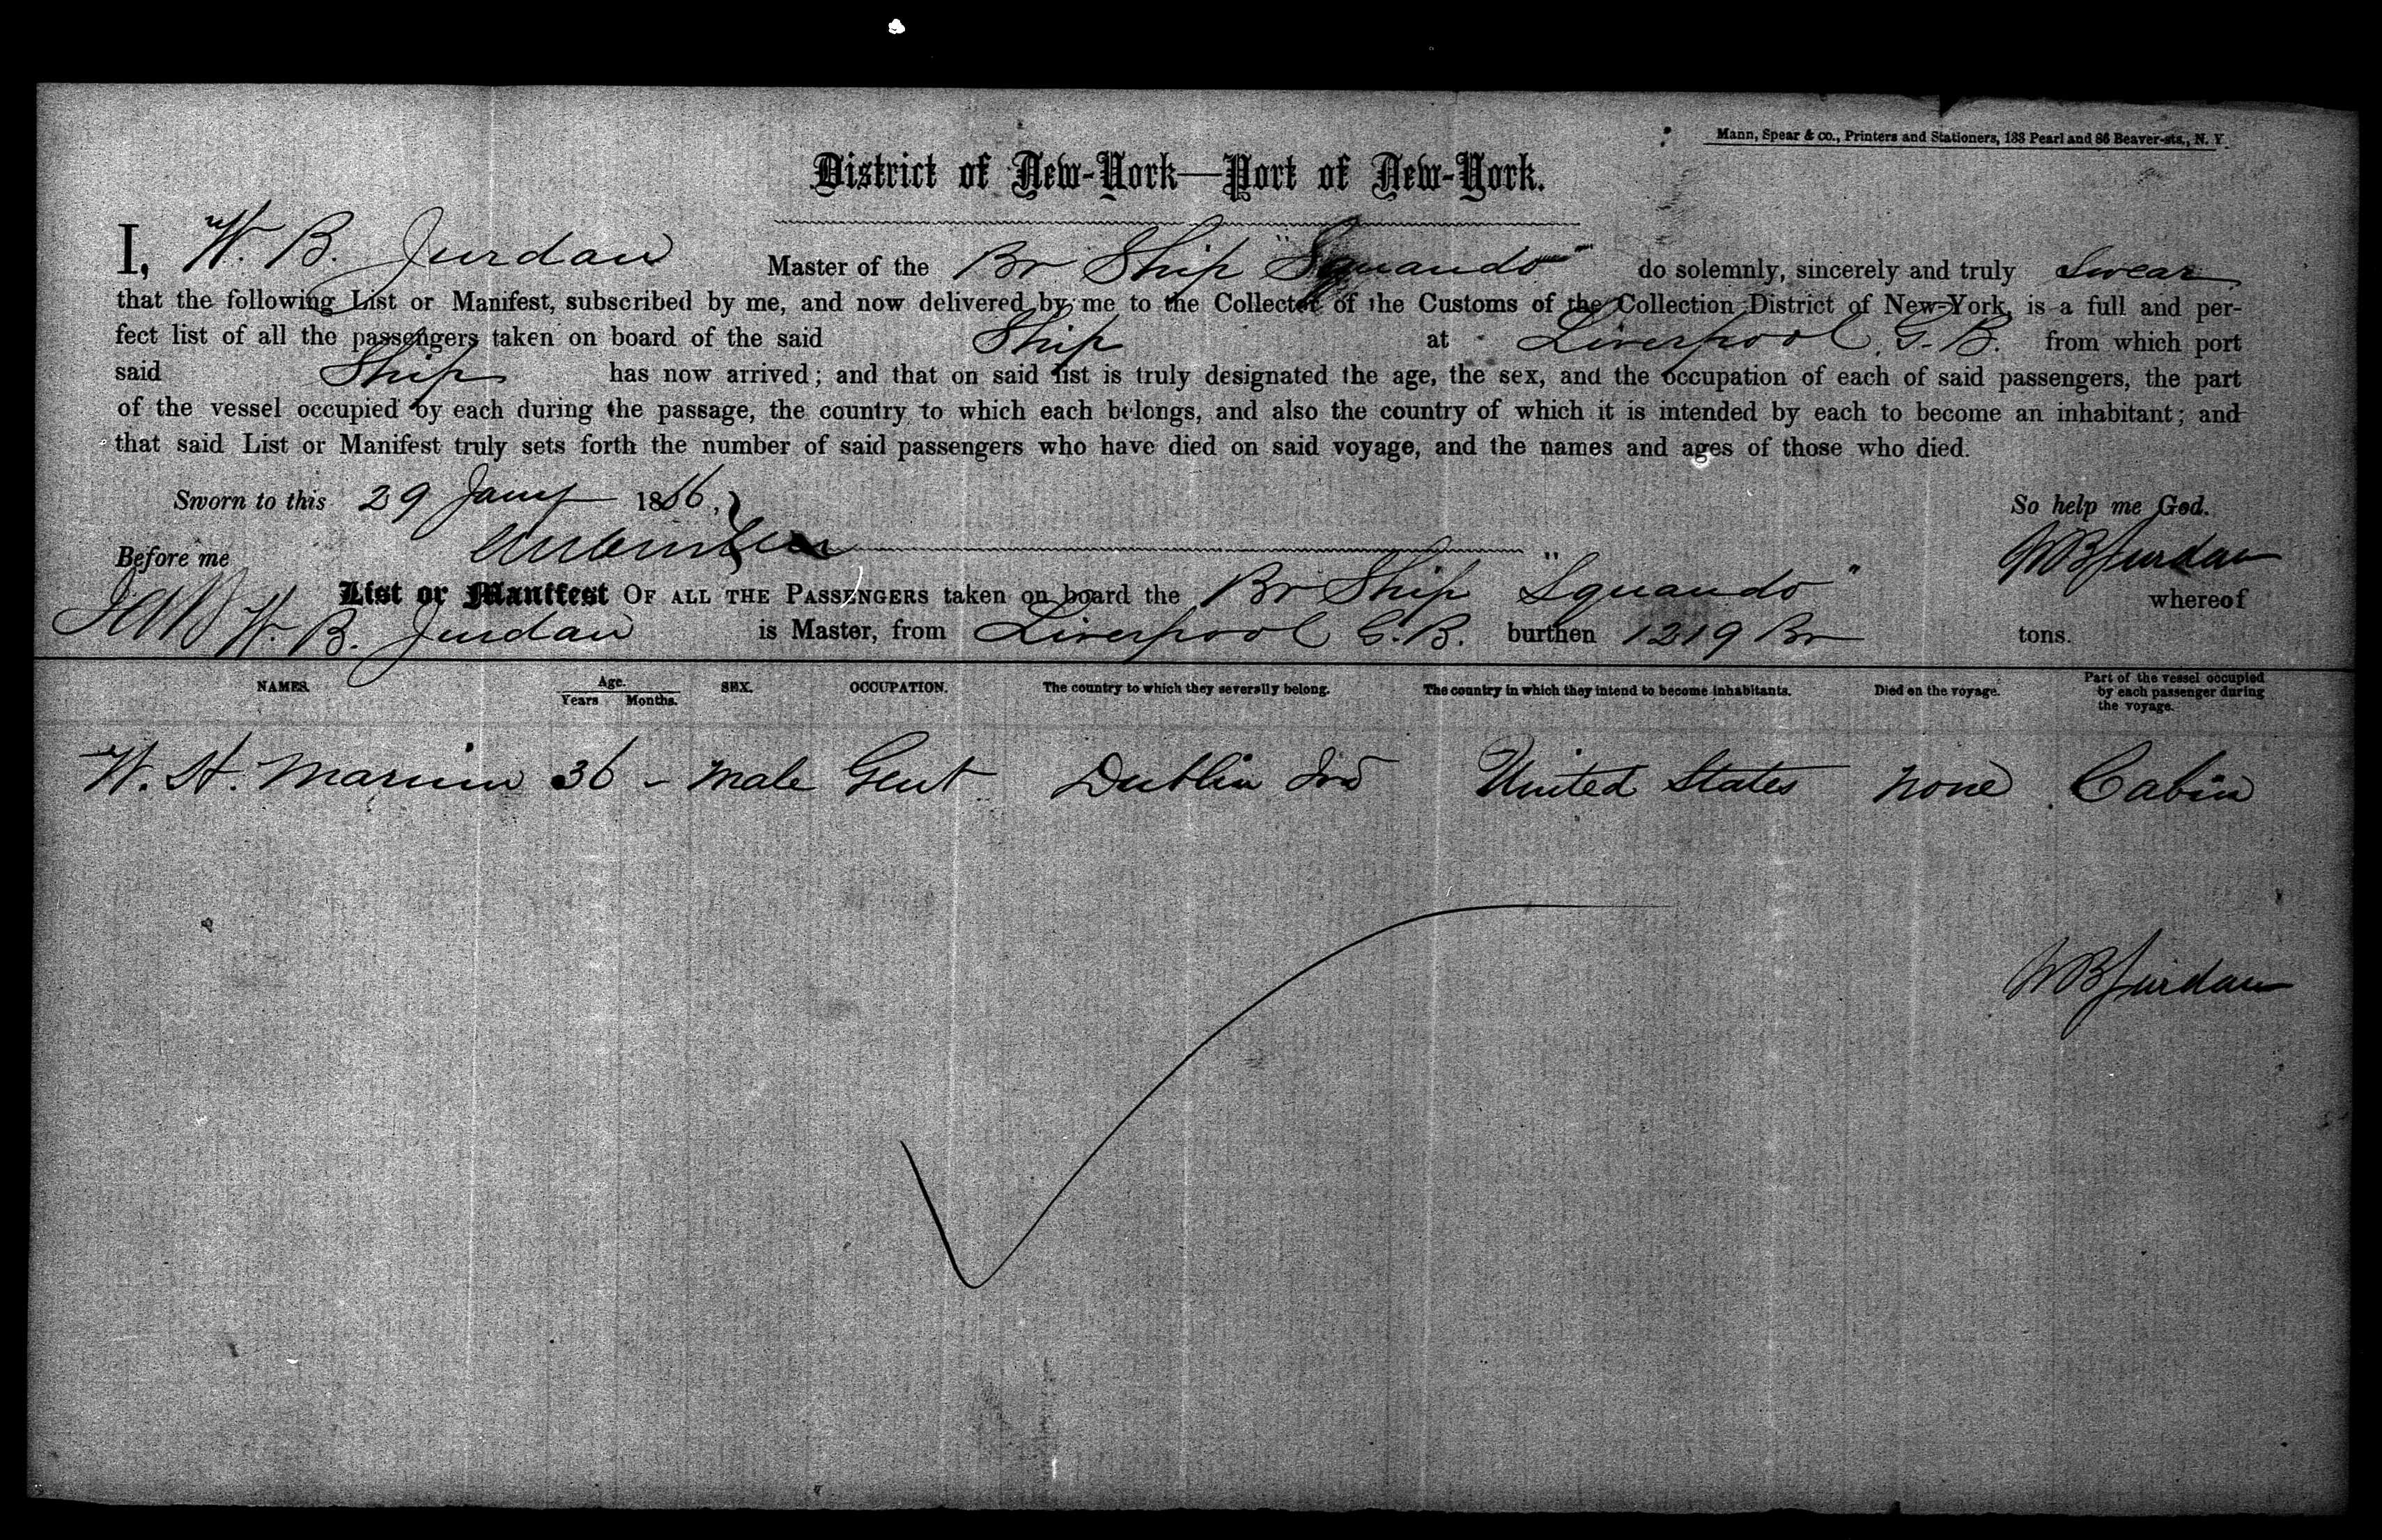 Mann, Spear & co., Printers and Stationers, 133 Pearl and 86 Beaver-sts., N. Y.
District of New-York—Port of New-York.
I, W. B. Jurdan Master of the Br Ship "Squando" do solemnly, sincerely and truly Swear
that the following List or Manifest, subscribed by me, and now delivered by me to the Collector of the Customs of the Collection District of New-York, is a full and per-
fect list of all the passengers taken on board of the said Ship at Liverpool, G. B. from which port
said Ship has now arrived; and that on said list is truly designated the age, the sex, and the occupation of each of said passengers, the part
of the vessel occupied by each during the passage, the country to which each belongs, and also the country of which it is intended by each to become an inhabitant; and
that said List or Manifest truly sets forth the number of said passengers who have died on said voyage, and the names and ages of those who died.
Sworn to this 29 Jany 1866, So help me God.
Before me WB Jurdan
List or Manifest OF ALL THE PASSENGERS taken on board the Br Ship "Squando" whereof
W. B. Jurdan is Master, from Liverpool G. B. burthen 1219 Br tons.
NAMES. Age. Years Months. SEX. OCCUPATION. The country to which they severally belong. The country in which they intend to become inhabitants. Died on the voyage. Part of the vessel occupied by each passenger during the voyage.
W. H. 36 - male Gent Dublin Ird United States none Cabin
WB Jurdan